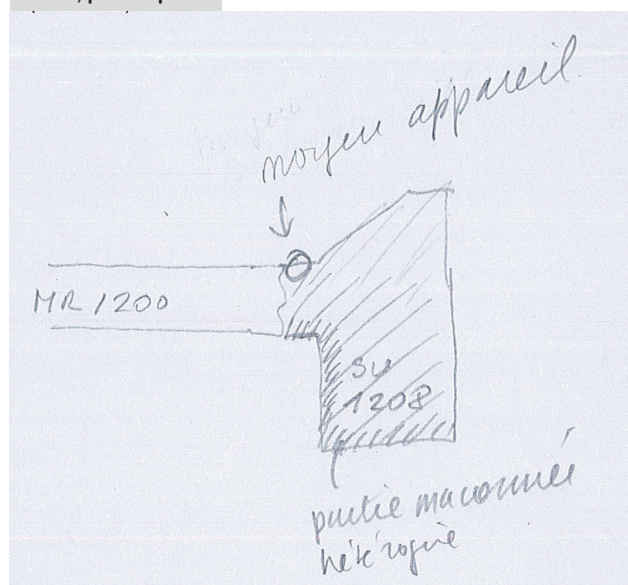 moyen appareil
MR 1200
SU
1208
partie maçonnée
hétérogène